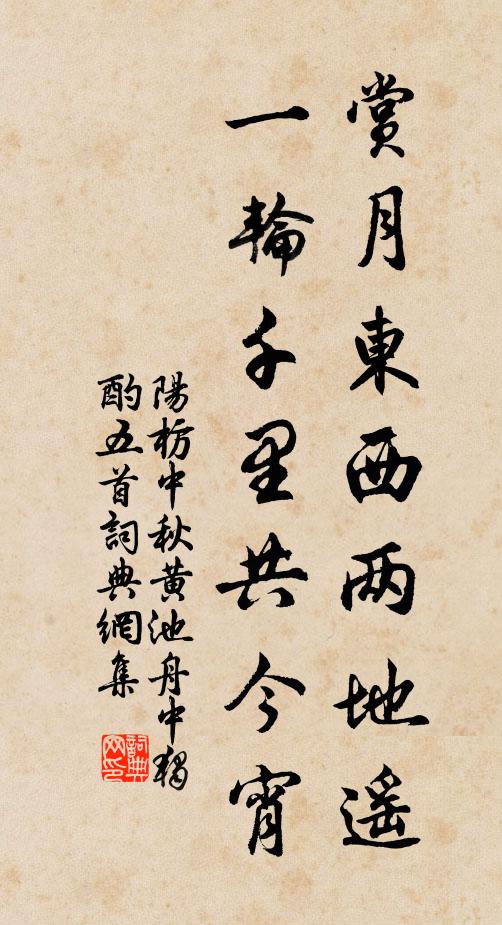 賞月東西两地遥
一輪千里共今宵
陽枋中秋黄池舟中獨
酌五首詞典網集
詞典
网印